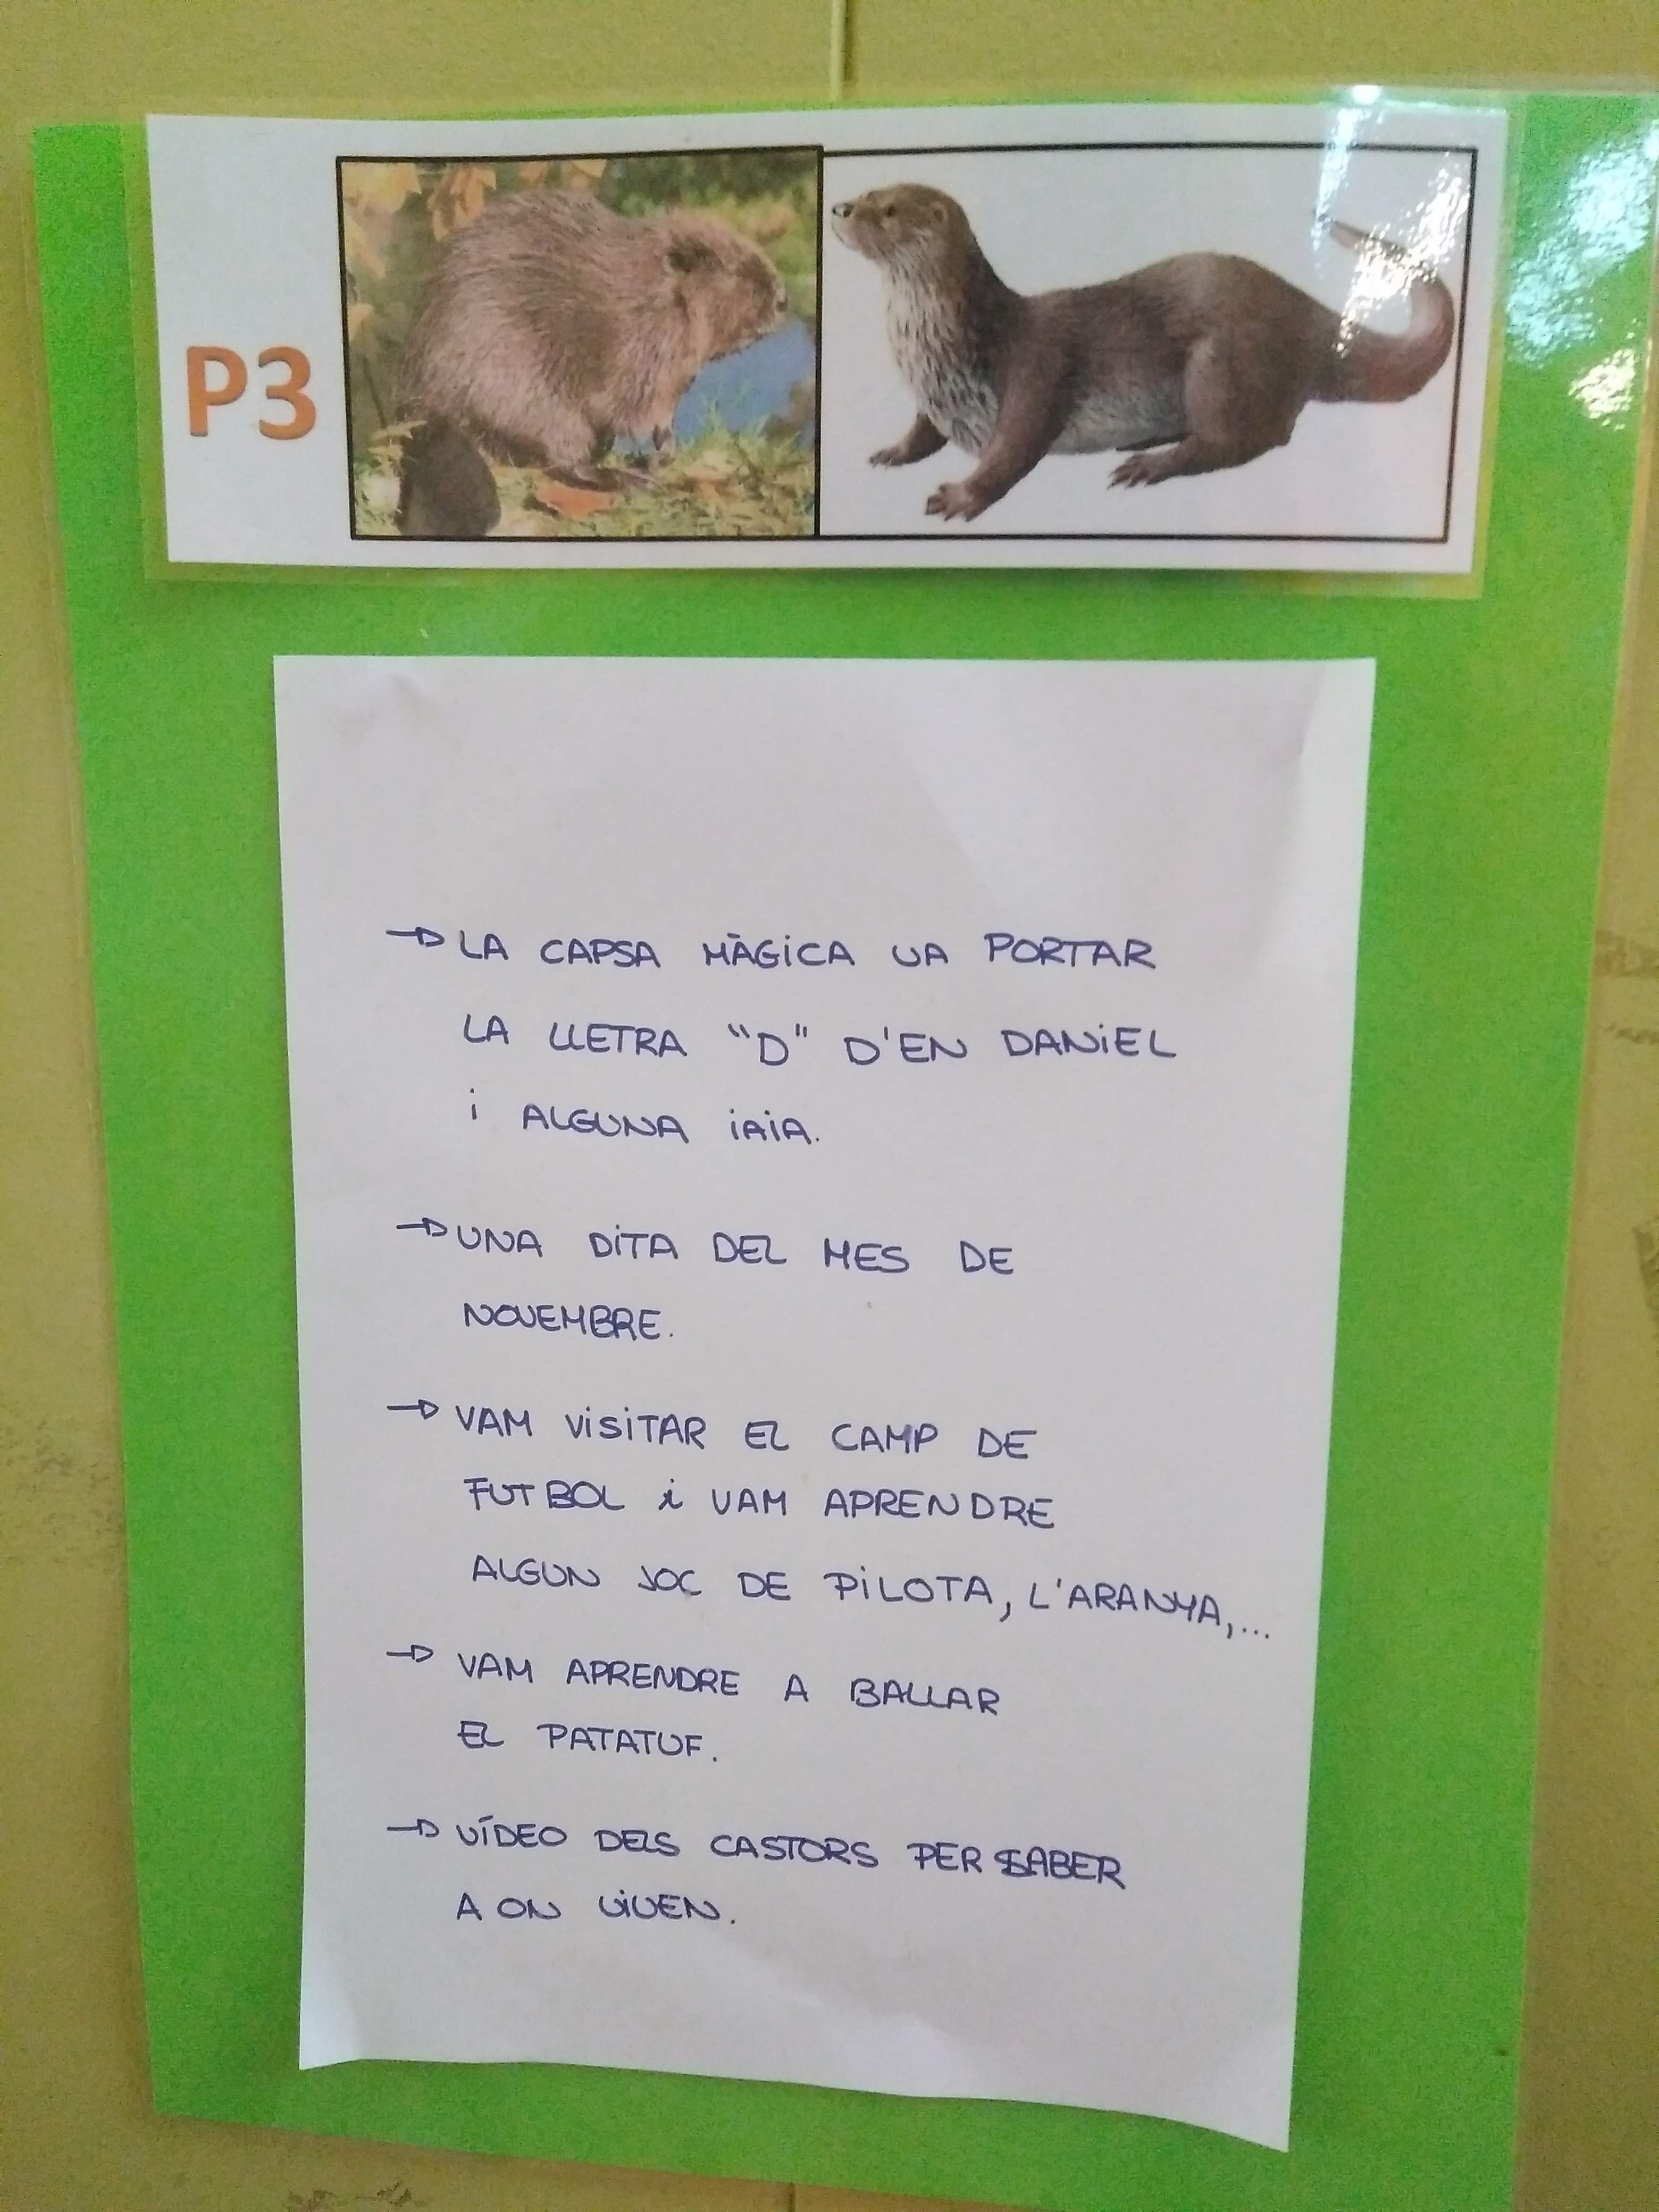 P3
→ LA CAPSA MÀGICA VA PORTAR
LA LLETRA "D" D'EN DANIEL
i ALGUNA IAIA.
→ UNA DITA DEL MES DE
NOVEMBRE.
→ VAM VISITAR EL CAMP DE
FUTBOL i VAM APRENDRE
ALGUN JOC DE PILOTA, L'ARANYA,...
→ VAM APRENDRE A BALLAR
EL PATATUF.
→ VÍDEO DELS CASTORS PER SABER
A ON VIUEN.